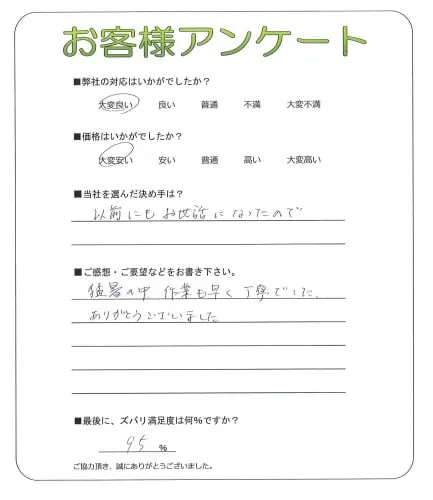 お客様アンケート
■弊社の対応はいかがでしたか？
大変良い 良い 普通 不満 大変不満
■価格はいかがでしたか？
大変安い 安い 普通 高い 大変高い
■当社を選んだ決め手は？
以前にもお世話になったので
■ご感想・ご要望などをお書き下さい。
猛暑の中 作業も早く 丁寧でした.
ありがとうございました
■最後に、ズバリ満足度は何%ですか？
95 %
ご協力頂き、誠にありがとうございました。